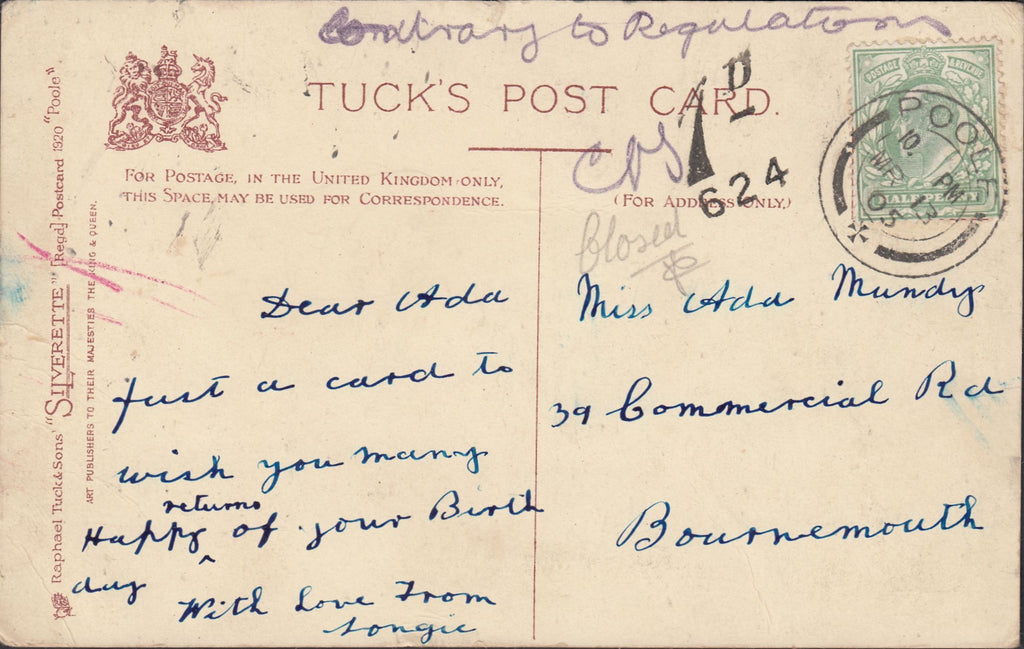 Contrary to Regulations
TUCK'S POST CARD.
1D
624
CDS
Closed
POSTAGE & REVENUE
HALFPENNY
POOLE
10. PM
MR 13
05
FOR POSTAGE, IN THE UNITED KINGDOM ONLY,
THIS SPACE, MAY BE USED FOR CORRESPONDENCE.
(FOR ADDRESS ONLY.)
Raphael Tuck & Sons' "SILVERETTE" [Regd] Postcard 1920 "Poole"
ART PUBLISHERS TO THEIR MAJESTIES THE KING & QUEEN.
Dear Ada
Just a card to
wish you many
returns
Happy ^ of your Birth
day
With Love From
Miss Ada Mundy
39 Commercial Rd
Bournemouth